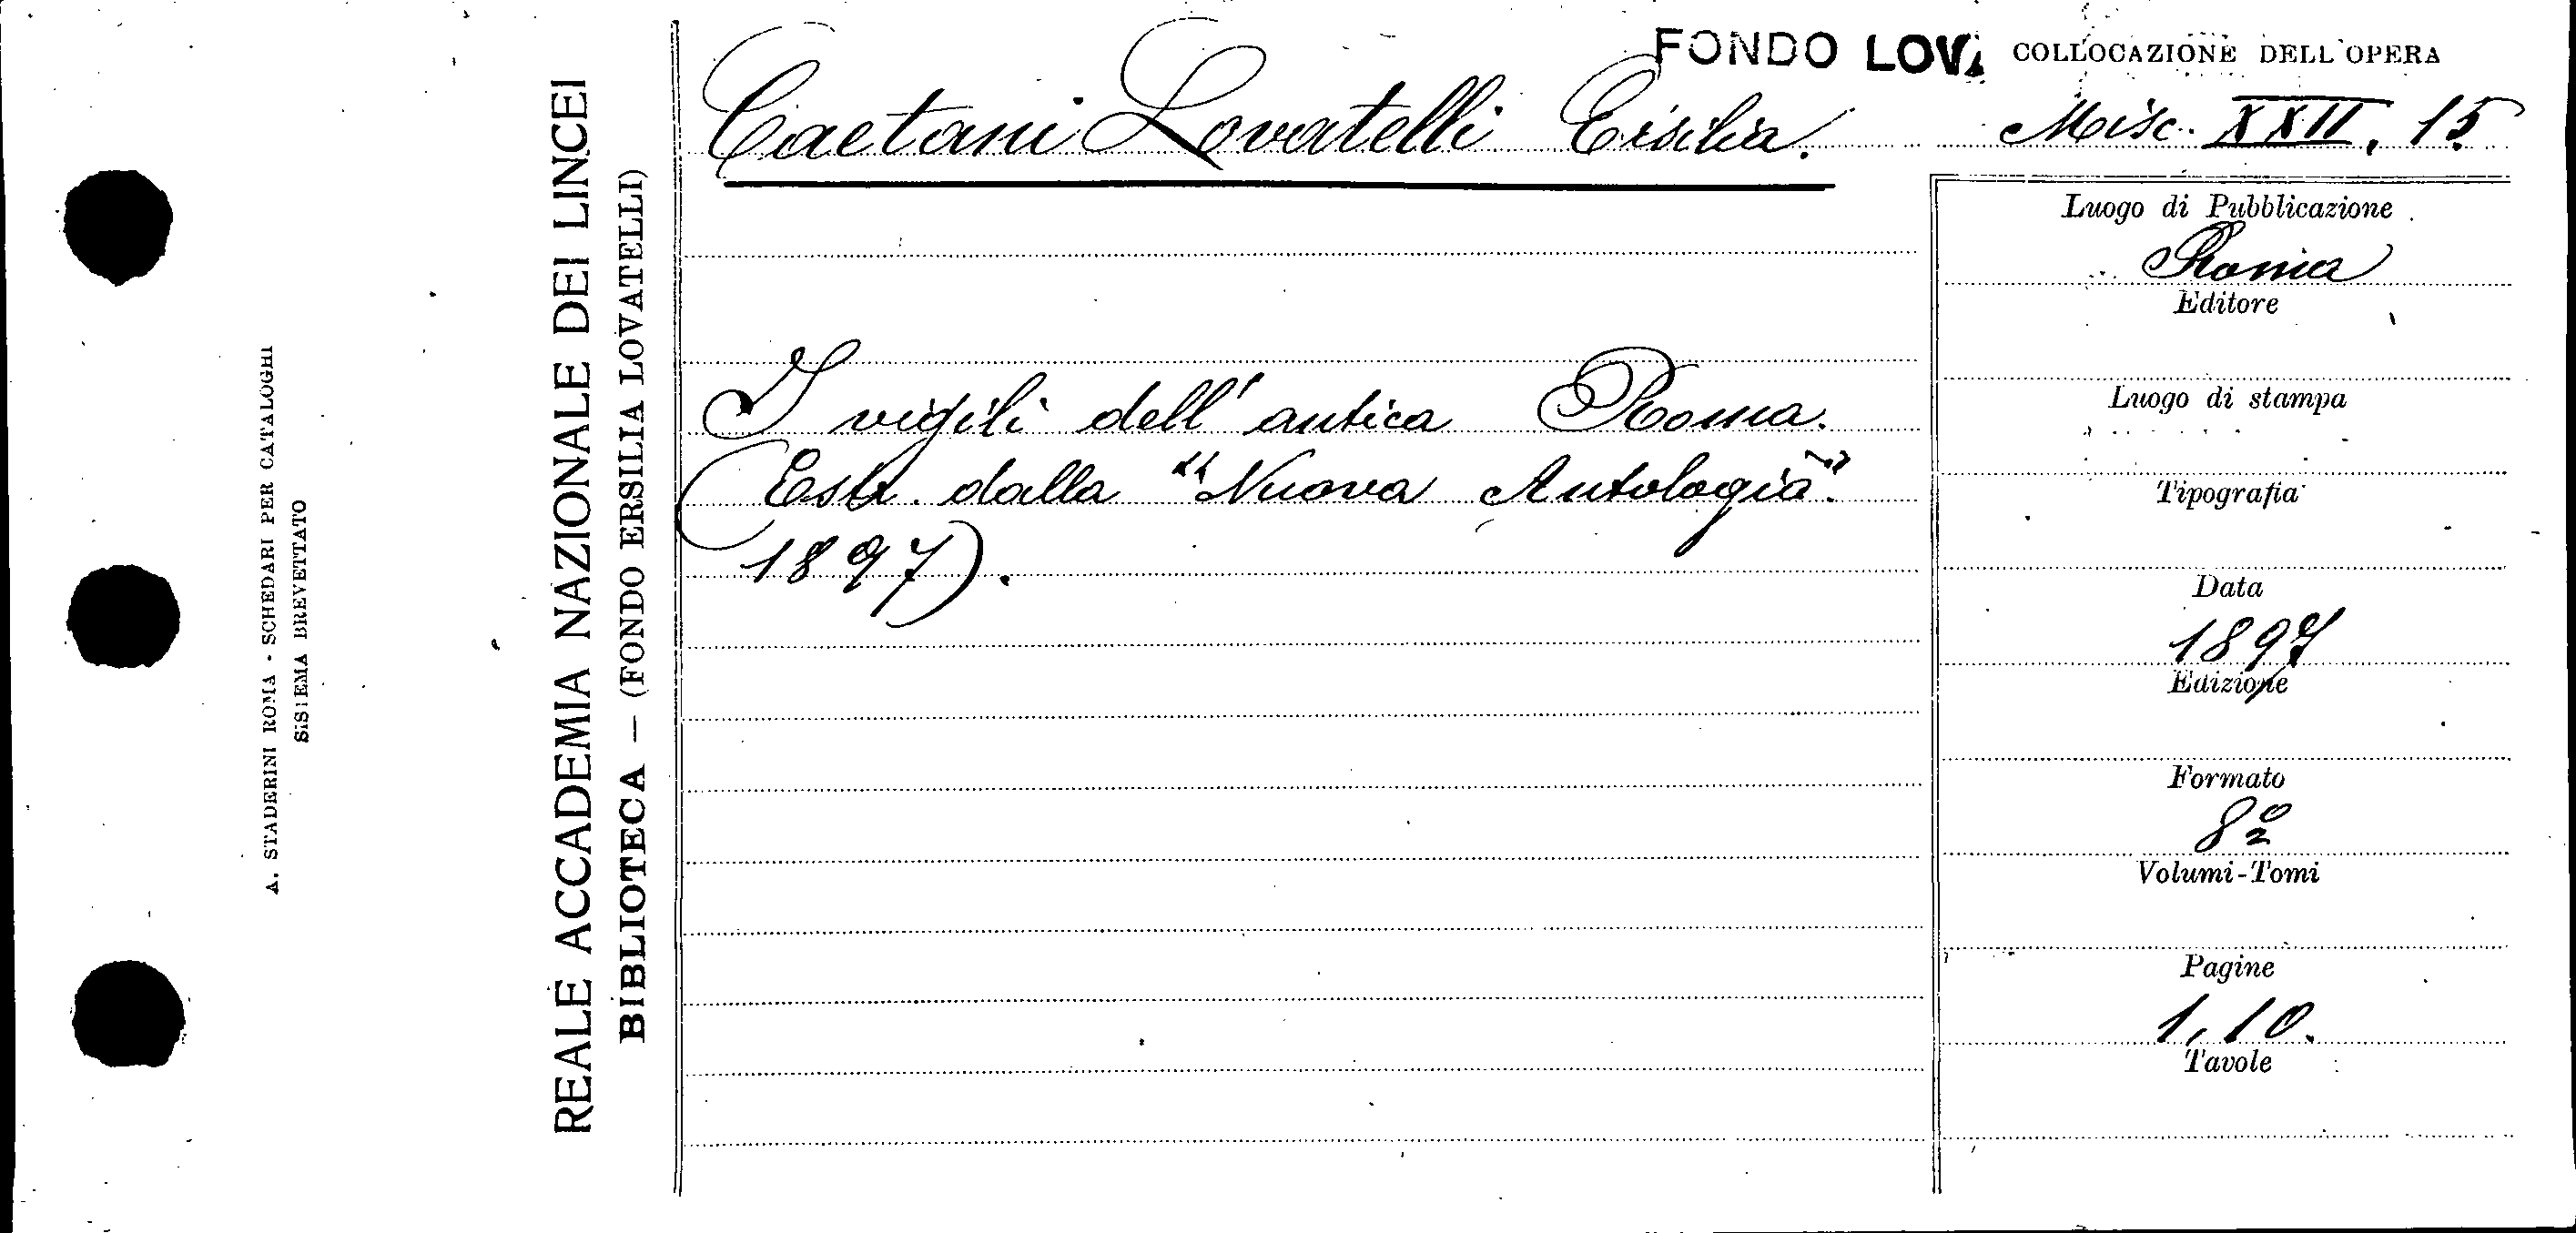 A. STADERINI ROMA - SCHEDARI PER CATALOGHI
SISTEMA BREVETTATO
REALE ACCADEMIA NAZIONALE DEI LINCEI
BIBLIOTECA — (FONDO ERSILIA LOVATELLI)
FONDO LOVA
COLLOCAZIONE DELL'OPERA
Caetani Lovatelli Ersilia.
Misc. XXII, 15.
I vigili dell'antica Roma.
(Estr. dalla "Nuova Antologia".
1897).
Luogo di Pubblicazione
Roma
Editore
Luogo di stampa
Tipografia
Data
1897
Edizione
Formato
8º
Volumi-Tomi
Pagine
1,10.
Tavole